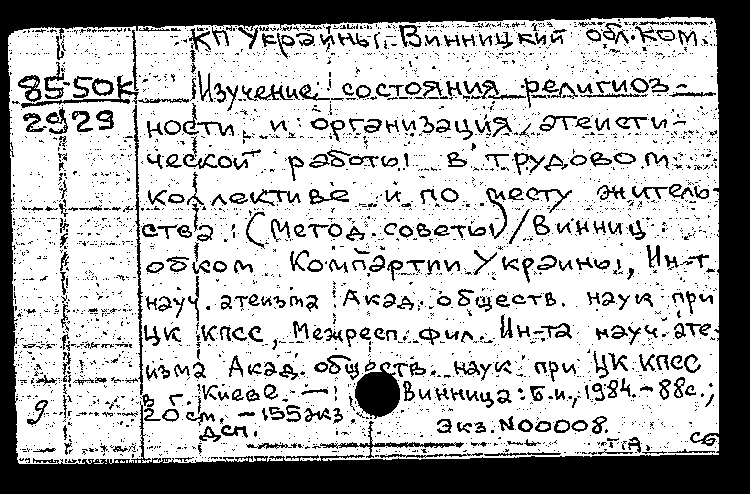 КП Украины. Винницкий обл. ком.
85-50К
2929
Изучение состояния религиоз-
ности и организация атеисти-
ческой работы в трудовом
коллективе и по месту житель-
ства: (Метод. советы) / Винниц.
обком Компартии Украины, Ин-т
науч. атеизма Акад. обществ. наук при
ЦК КПСС, Межресп. фил. Ин-та науч. ате-
изма Акад. обществ. наук при ЦК КПСС
в г. Киеве. — Винница: Б.и., 1984. – 88с.;
20 см. – 155 экз.
ДСП. Экз. N00008.
9
Т.А. СБ